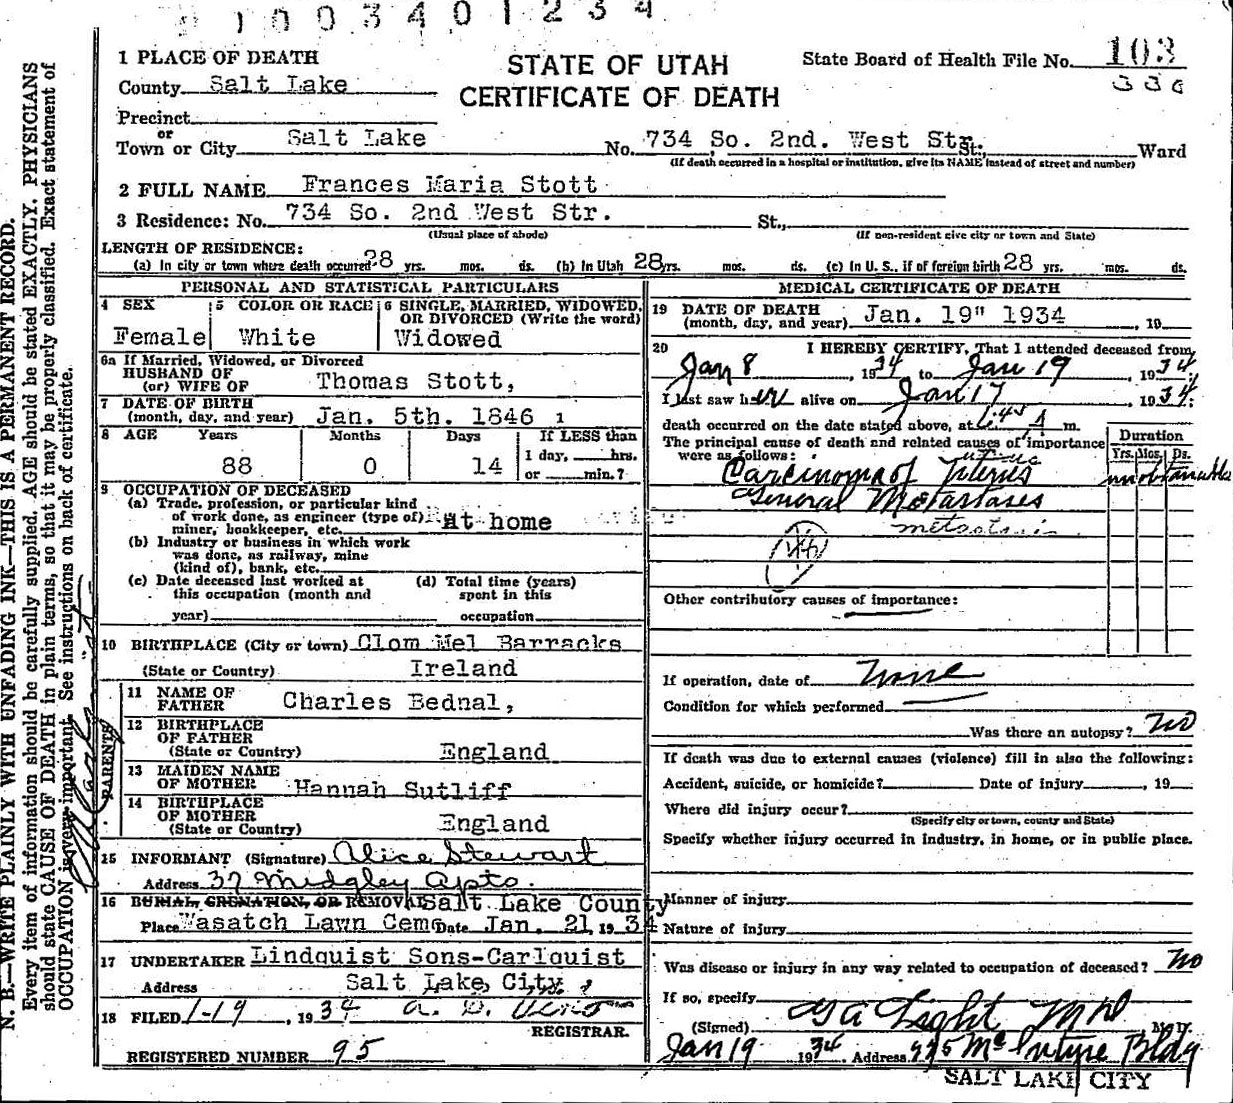 1003401234
1 PLACE OF DEATH
County Salt Lake
Precinct
or
Town or City Salt Lake
STATE OF UTAH
CERTIFICATE OF DEATH
State Board of Health File No. 103
336
No. 734 So. 2nd. West Str. St. Ward
(If death occurred in a hospital or institution, give its NAME instead of street and number)
2 FULL NAME Frances Maria Stott
3 Residence: No. 734 So. 2nd West Str. St.,
(Usual place of abode) (If non-resident give city or town and State)
LENGTH OF RESIDENCE:
(a) In city or town where death occurred 28 yrs. mos. ds. (b) In Utah 28 yrs. mos. ds. (c) In U. S., if of foreign birth 28 yrs. mos. ds.
PERSONAL AND STATISTICAL PARTICULARS
4 SEX
Female
5 COLOR OR RACE
White
6 SINGLE, MARRIED, WIDOWED,
OR DIVORCED (Write the word)
Widowed
6a If Married, Widowed, or Divorced
HUSBAND OF
(or) WIFE OF Thomas Stott,
7 DATE OF BIRTH
(month, day, and year) Jan. 5th. 1846 1
8 AGE Years Months Days If LESS than
88 0 14 1 day, hrs.
or min.?
9 OCCUPATION OF DECEASED
(a) Trade, profession, or particular kind
of work done, as engineer (type of) At home
miner, bookkeeper, etc.
(b) Industry or business in which work
was done, as railway, mine
(kind of), bank, etc.
(c) Date deceased last worked at
this occupation (month and
year)
(d) Total time (years)
spent in this
occupation
10 BIRTHPLACE (City or town) Clom Mel Barracks
(State or Country) Ireland
PARENTS
11 NAME OF
FATHER Charles Bednal,
12 BIRTHPLACE
OF FATHER
(State or Country) England
13 MAIDEN NAME
OF MOTHER Hannah Sutliff
14 BIRTHPLACE
OF MOTHER
(State or Country) England
15 INFORMANT (Signature) Alice Stewart
Address 37 Midgley Apts.
16 BURIAL, CREMATION, OR REMOVAL Salt Lake County
Place Wasatch Lawn Cem Date Jan. 21, 1934
17 UNDERTAKER Lindquist Sons-Carlquist
Address Salt Lake, City,
18 FILED 1-19, 1934
REGISTRAR.
REGISTERED NUMBER 95
MEDICAL CERTIFICATE OF DEATH
19 DATE OF DEATH
(month, day, and year) Jan. 19" 1934, 19
20 I HEREBY CERTIFY, That I attended deceased from
Jan 8, 1934 to Jan 19, 1934;
I last saw her alive on Jan 17, 1934;
death occurred on the date stated above, at 1:45 A m.
The principal cause of death and related causes of importance
were as follows:
Duration
Yrs. Mos. Ds.
Carcinoma of Uterus
unobtainable
General Metastases
Other contributory causes of importance:
If operation, date of None
Condition for which performed
Was there an autopsy? No
If death was due to external causes (violence) fill in also the following:
Accident, suicide, or homicide? Date of injury, 19
Where did injury occur?
(Specify city or town, county and State)
Specify whether injury occurred in industry, in home, or in public place.
Manner of injury
Nature of injury
Was disease or injury in any way related to occupation of deceased? No
If so, specify
(Signed) G A Light MD M. D.
Jan 19 1934. Address 925 McIntyre Bldg
SALT LAKE CITY
N. B.—WRITE PLAINLY WITH UNFADING INK—THIS IS A PERMANENT RECORD.
Every item of information should be carefully supplied. AGE should be stated EXACTLY. PHYSICIANS
should state CAUSE OF DEATH in plain terms, so that it may be properly classified. Exact statement of
OCCUPATION is very important. See instructions on back of certificate.